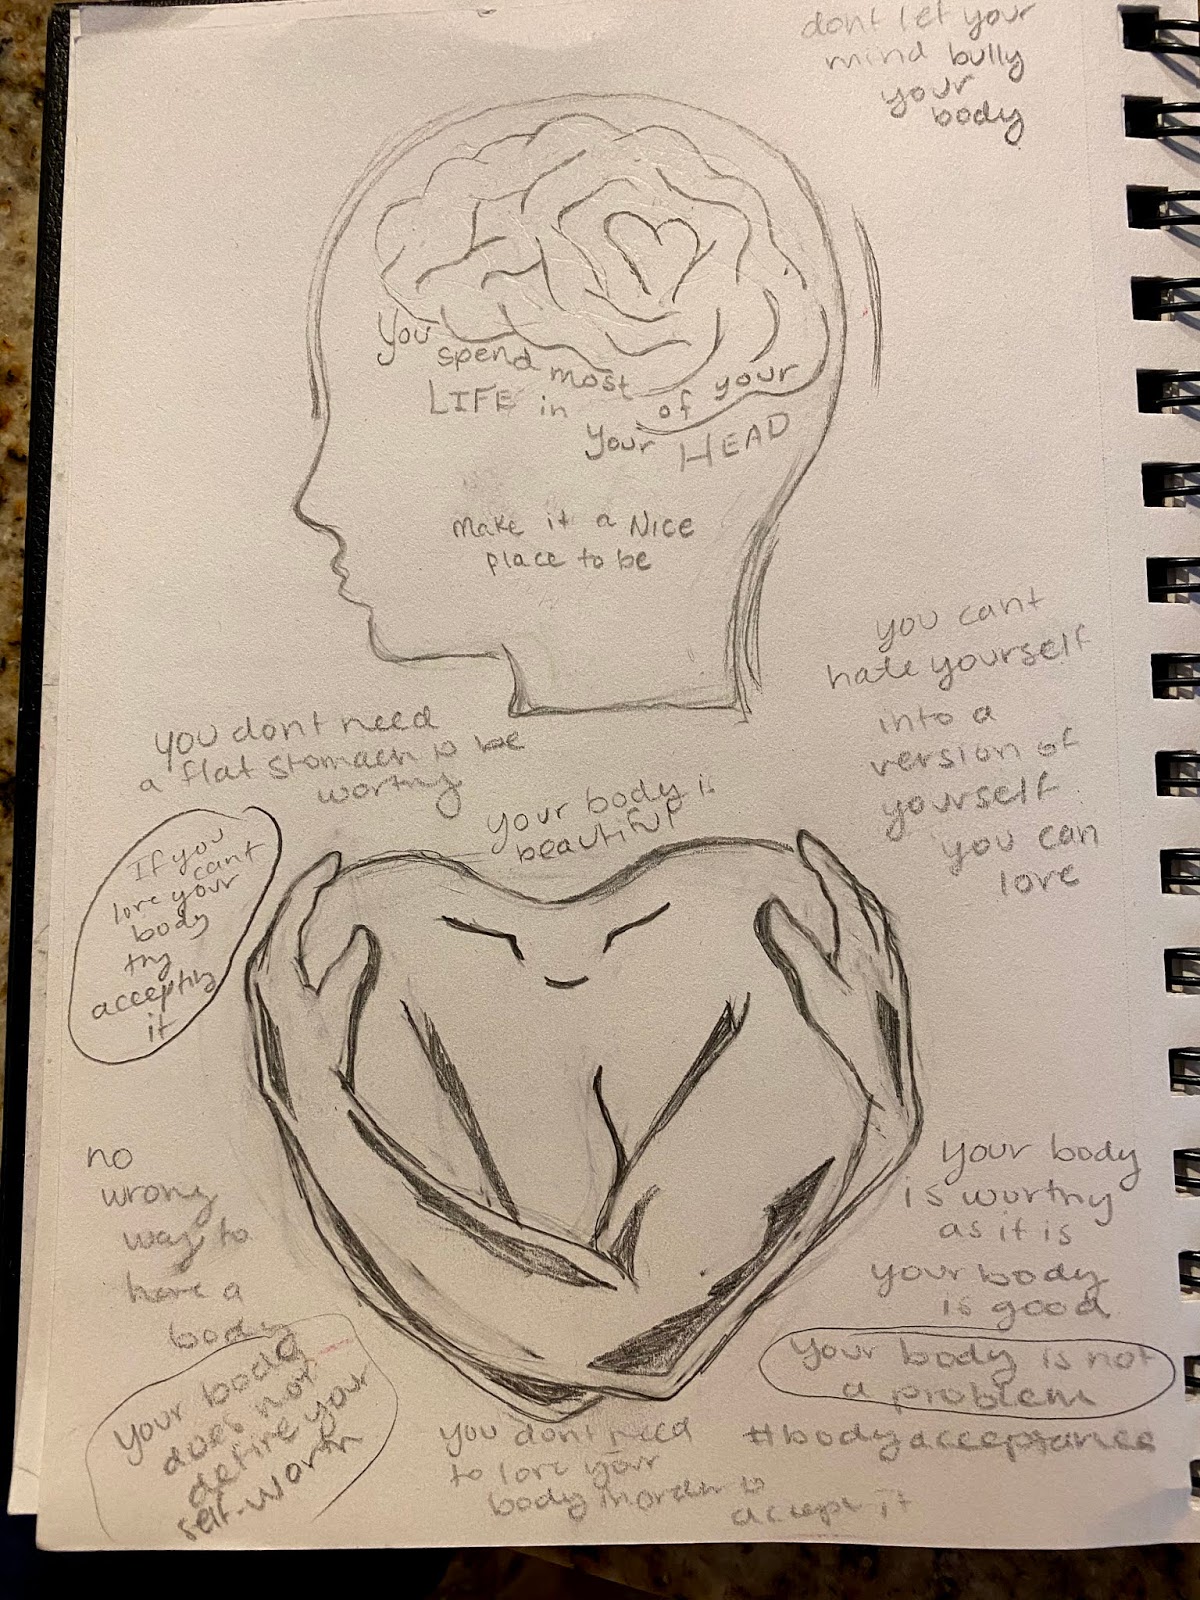 dont let your
mind bully
your
body
You spend most of your
LIFE in your HEAD
make it a NICE
place to be
you cant
hate yourself
into a
version of
yourself
you can
love
you dont need
a flat stomach to be
worthy
your body is
beautiful
If you
cant
love your
body
try
accepting
it
no
wrong
way to
have a
body
your body
is worthy
as it is
your body
is good
your body is not
a problem
#bodyacceptance
your body
does not
define your
self-worth
you dont need
to love your
body in order to
accept it